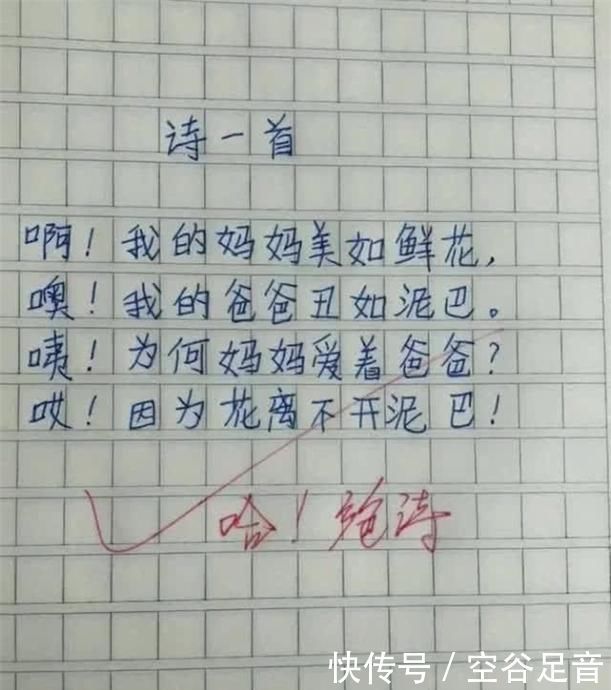 诗一首
啊！我的妈妈美如鲜花，
噢！我的爸爸丑如泥巴。
咦！为何妈妈爱着爸爸？
哎！因为花离不开泥巴！
哈！绝诗
快传号／空谷足音